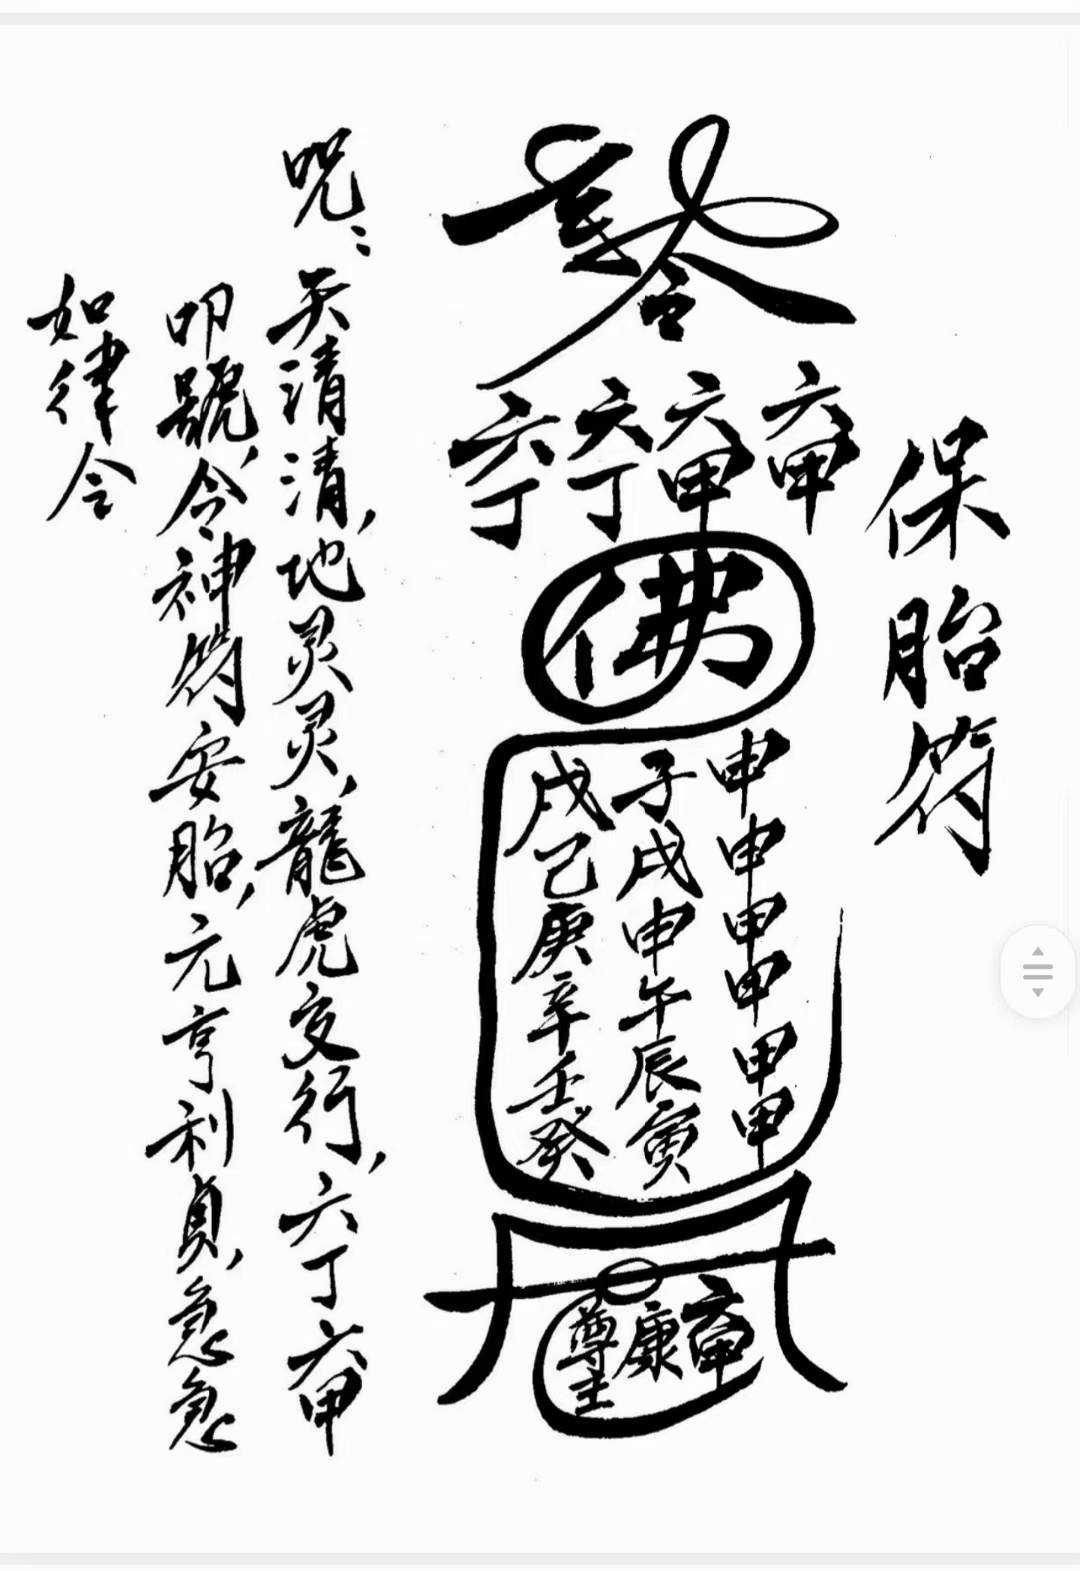 保胎符
六甲
六甲
六丁
六丁
佛
甲甲甲甲甲甲
子戌申午辰寅
戊己庚辛壬癸
康
尊主
咒：天清清，地灵灵，龍虎交行，六丁六甲
叩號，令神符安胎，元亨利貞，急急
如律令